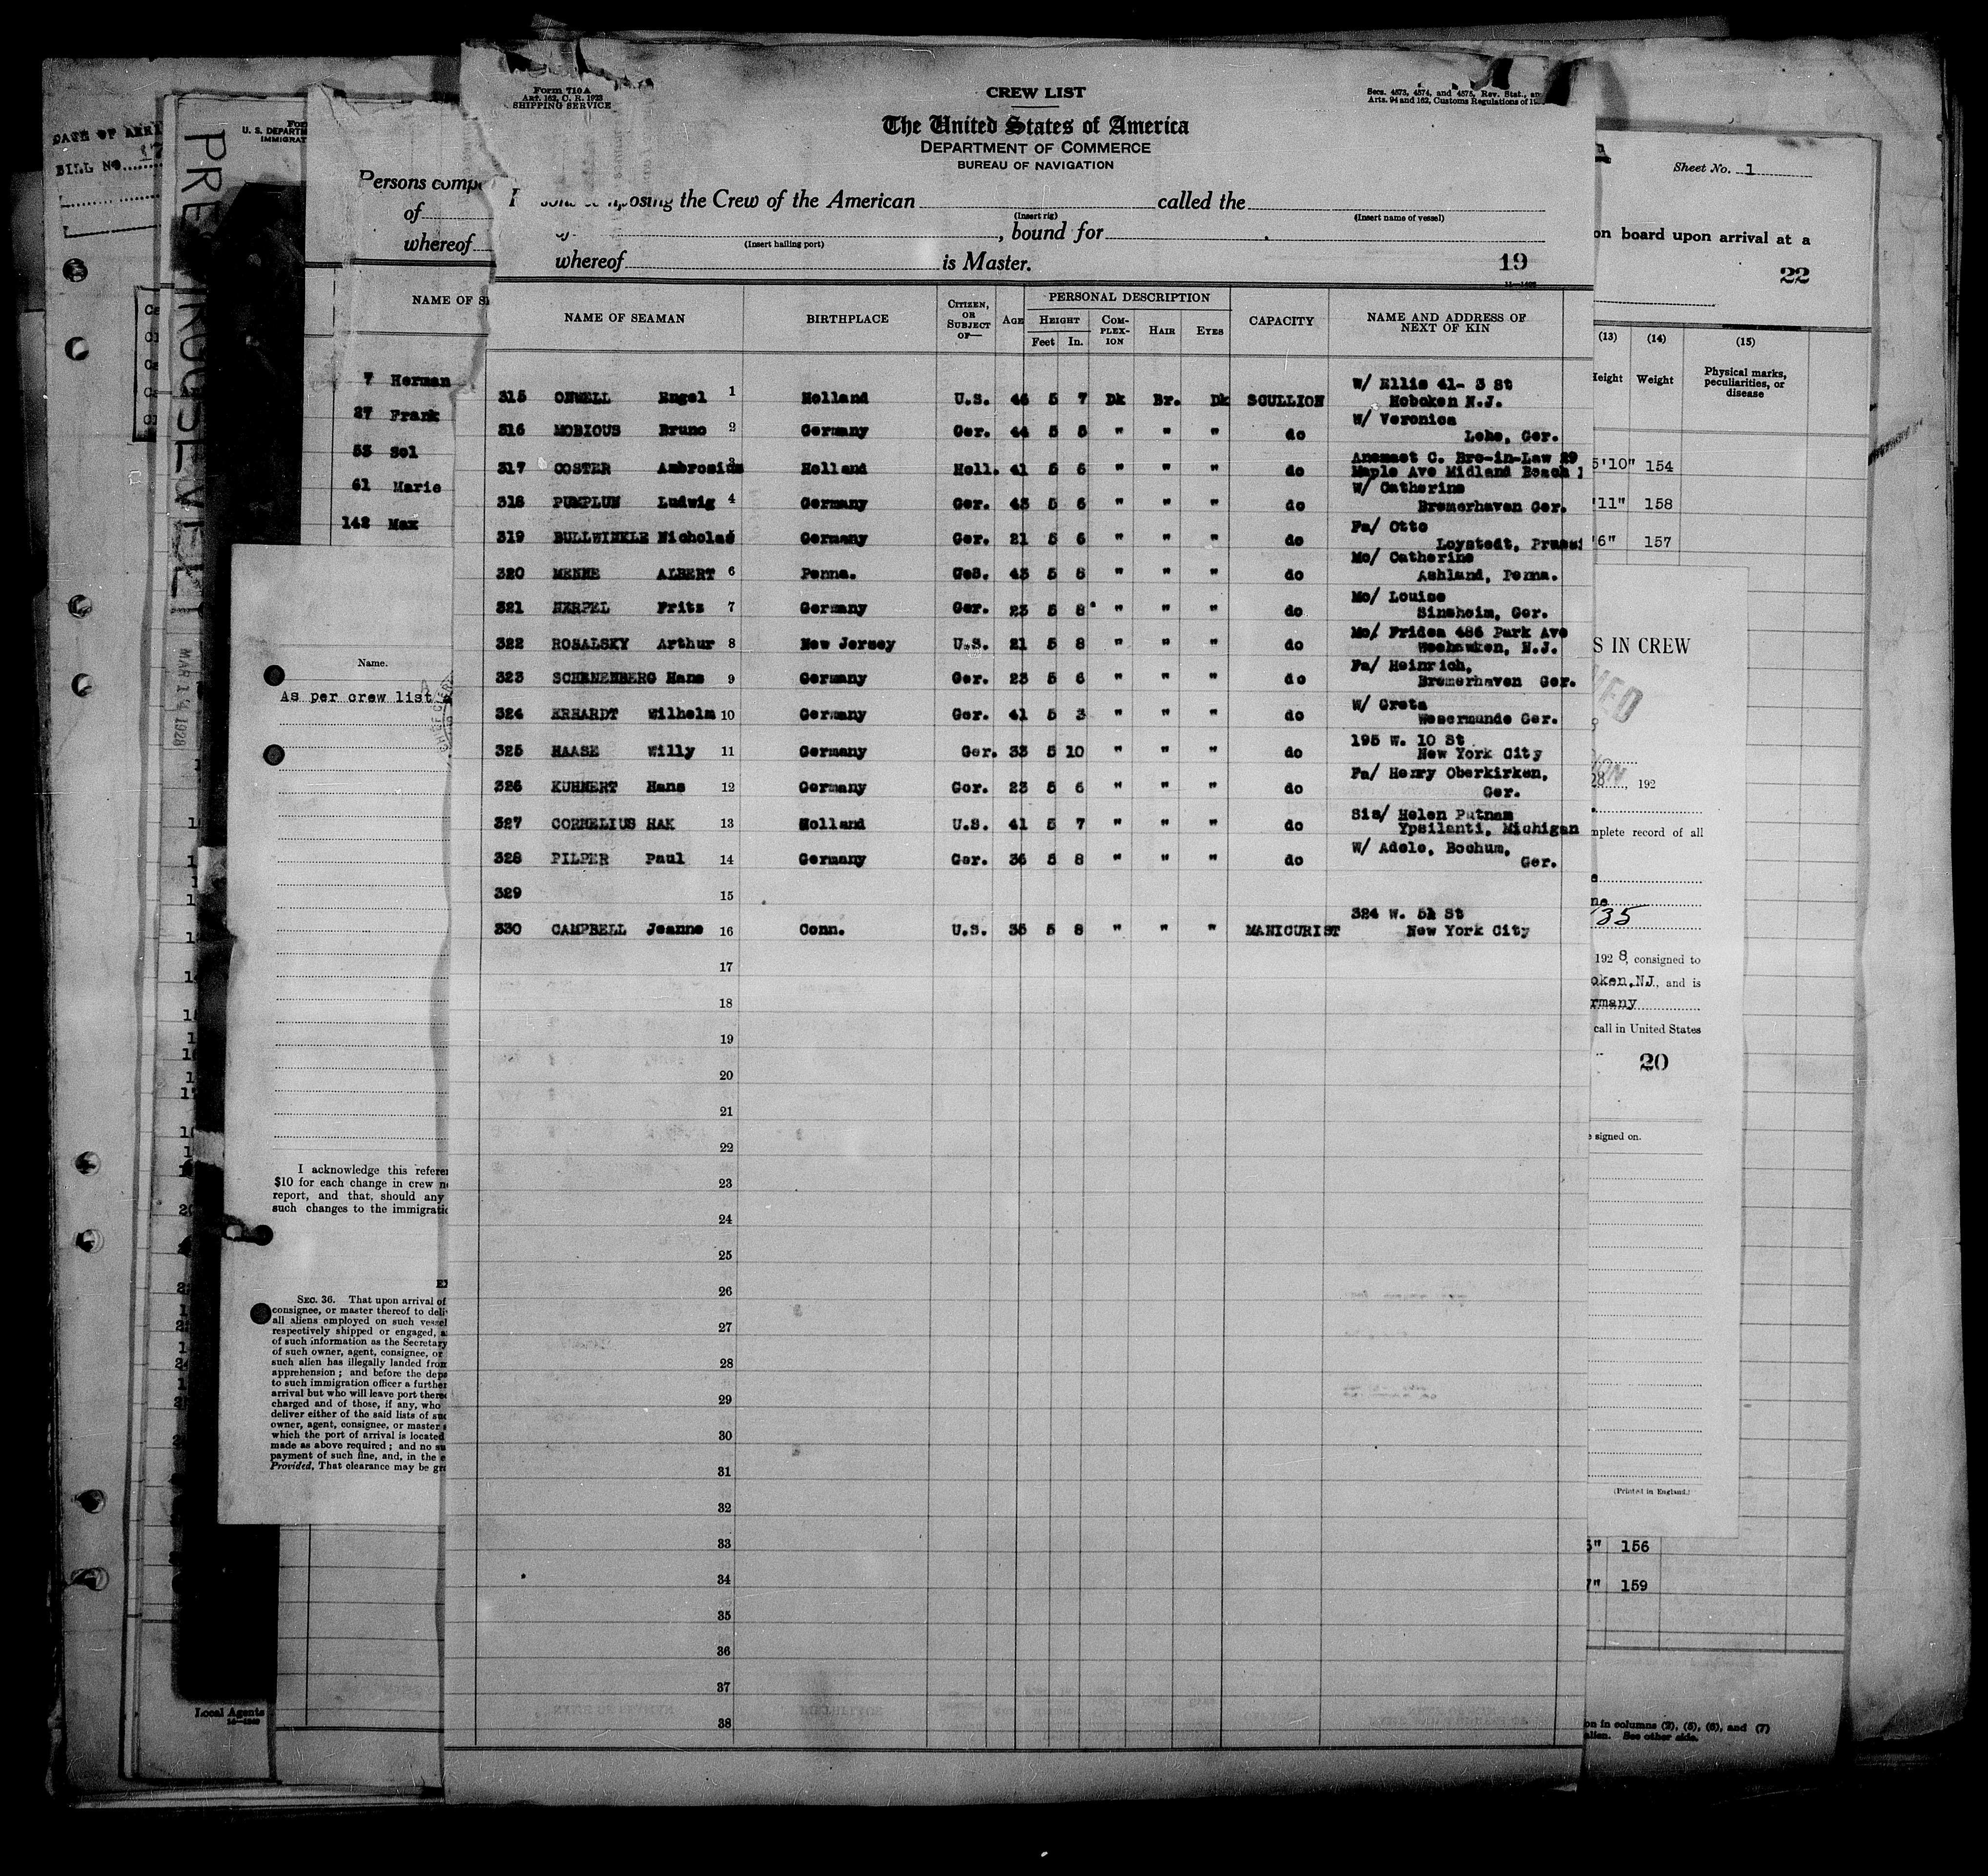 Form 710A
Art. 162, C. R. 1923
SHIPPING SERVICE
CREW LIST
Secs. 4573, 4574, and 4575, Rev. Stat., an
Arts. 94 and 162, Customs Regulations of
The United States of America
DEPARTMENT OF COMMERCE
BUREAU OF NAVIGATION
posing the Crew of the American called the
(Insert rig) (Insert name of vessel)
, bound for
(Insert hailing port)
whereof is Master. 19
NAME OF SEAMAN BIRTHPLACE CITIZEN, OR SUBJECT OF— AGE PERSONAL DESCRIPTION CAPACITY NAME AND ADDRESS OF NEXT OF KIN
HEIGHT COM-PLEX-ION HAIR EYES
Feet In.
315 Engel 1 Holland U.S. 5 7 Dk Br. Dk SCULLION W/ Ellis 41- 3 St
Hoboken N.J.
316 MOBIOUS Bruno 2 Germany Ger. 44 5 " " " do W/ Veronica
Lehe, Ger.
317 COSTER Ambrosius 3 Holland Holl. 41 5 6 " " " do Bro-in-Law 29
Maple Ave Midland Beach
318 PUMPLUN Ludwig 4 Germany Ger. 43 5 6 " " " do W/ Catherine
Bremerhaven Ger.
319 BULLWINKLE Nicholas 5 Germany Ger. 21 5 6 " " " do Fa/ Otto
Loystedt, Prussi
320 MENNE ALBERT 6 Penna. 43 5 8 " " " do Mo/ Catherine
Ashland, Penna.
321 HERPEL Fritz 7 Germany Ger. 23 5 8 " " " do Mo/ Louise
Sinsheim, Ger.
322 ROSALSKY Arthur 8 New Jersey U.S. 21 5 8 " " " do Mo/ Fridea 486 Park Ave
Weehawken, N.J.
323 SCHENENBERG Hans 9 Germany Ger. 23 5 6 " " " do Fa/ Heinrich,
Bremerhaven Ger.
324 ERHARDT Wilhelm 10 Germany Ger. 41 5 3 " " " do W/ Greta
Wesermunde Ger.
325 HAASE Willy 11 Germany Ger. 33 5 10 " " " do 195 W. 10 St
New York City
326 KUHNERT Hans 12 Germany Ger. 23 5 6 " " " do Fa/ Henry Oberkirken,
Ger.
327 CORNELIUS HAK 13 Holland U.S. 41 5 7 " " " do Sis/ Helen Putnam
Ypsilanti, Michigan
328 PILPER Paul 14 Germany Ger. 36 5 8 " " " do W/ Adele, Bochum,
Ger.
329 15
330 CAMPBELL Jeanne 16 Conn. U.S. 35 5 8 " " " MANICURIST 324 W. 51 St
New York City
17
18
19
20
21
22
23
24
25
26
27
28
29
30
31
32
33
34
35
36
37
38
BILL NO.
U. S. DEPARTM
IMMIGRAT
Persons comp
of
whereof
NAME OF S
7 Herman
27 Frank
53 Sol
61 Marie
142 Max
MAR 14 1928
Name.
As per crew list
I acknowledge this refere
$10 for each change in crew n
report, and that, should any
such changes to the immigrati
SEC. 36. That upon arrival of
consignee, or master thereof to deli
all aliens employed on such vessel
respectively shipped or engaged, a
of such information as the Secretary
of such owner, agent, consignee, or
such alien has illegally landed from
apprehension; and before the depa
to such immigration officer a further
arrival but who will leave port there
charged and of those, if any, who
deliver either of the said lists of suc
owner, agent, consignee, or master
which the port of arrival is located
made as above required; and no su
payment of such fine, and, in the e
Provided, That clearance may be gra
Local Agents
Sheet No. 1
on board upon arrival at a
22
(13) (14) (15)
Height Weight Physical marks, peculiarities, or disease
5'10" 154
'11" 158
'6" 157
S IN CREW
28, 192
mplete record of all
ne
35
1928, consigned to
oken, NJ., and is
rmany
call in United States
20
signed on.
(Printed in England.)
156
159
on in columns (2), (5), (6), and (7)
alien. See other side.